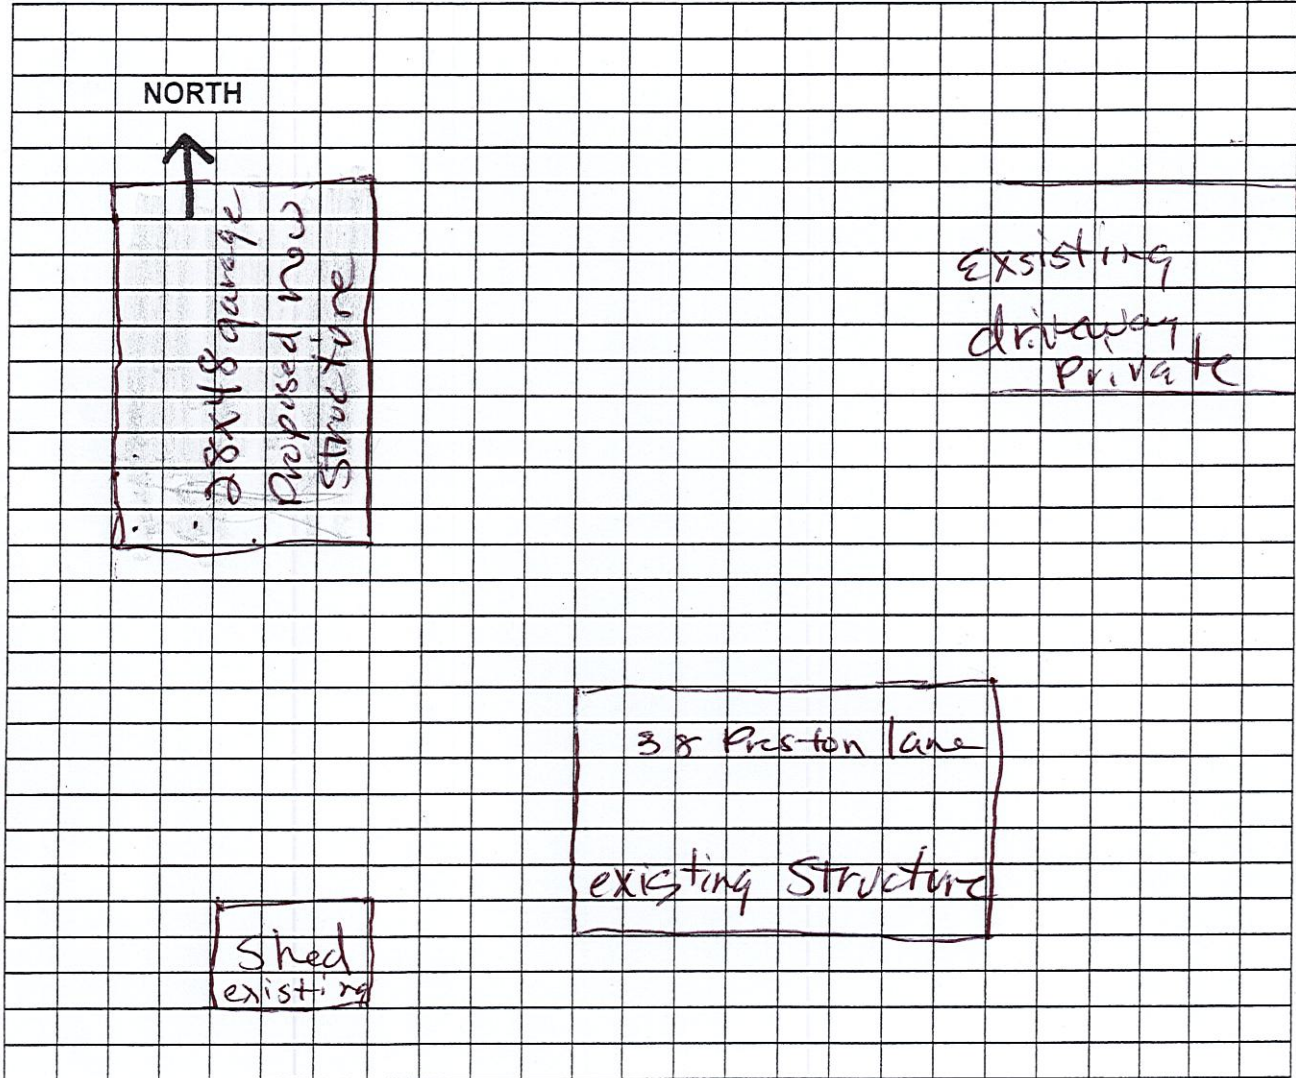 NORTH
28x48 garage
Proposed new
Structure
Exsisting
driveway
Private
38 Preston lane
existing Structure
Shed
existing